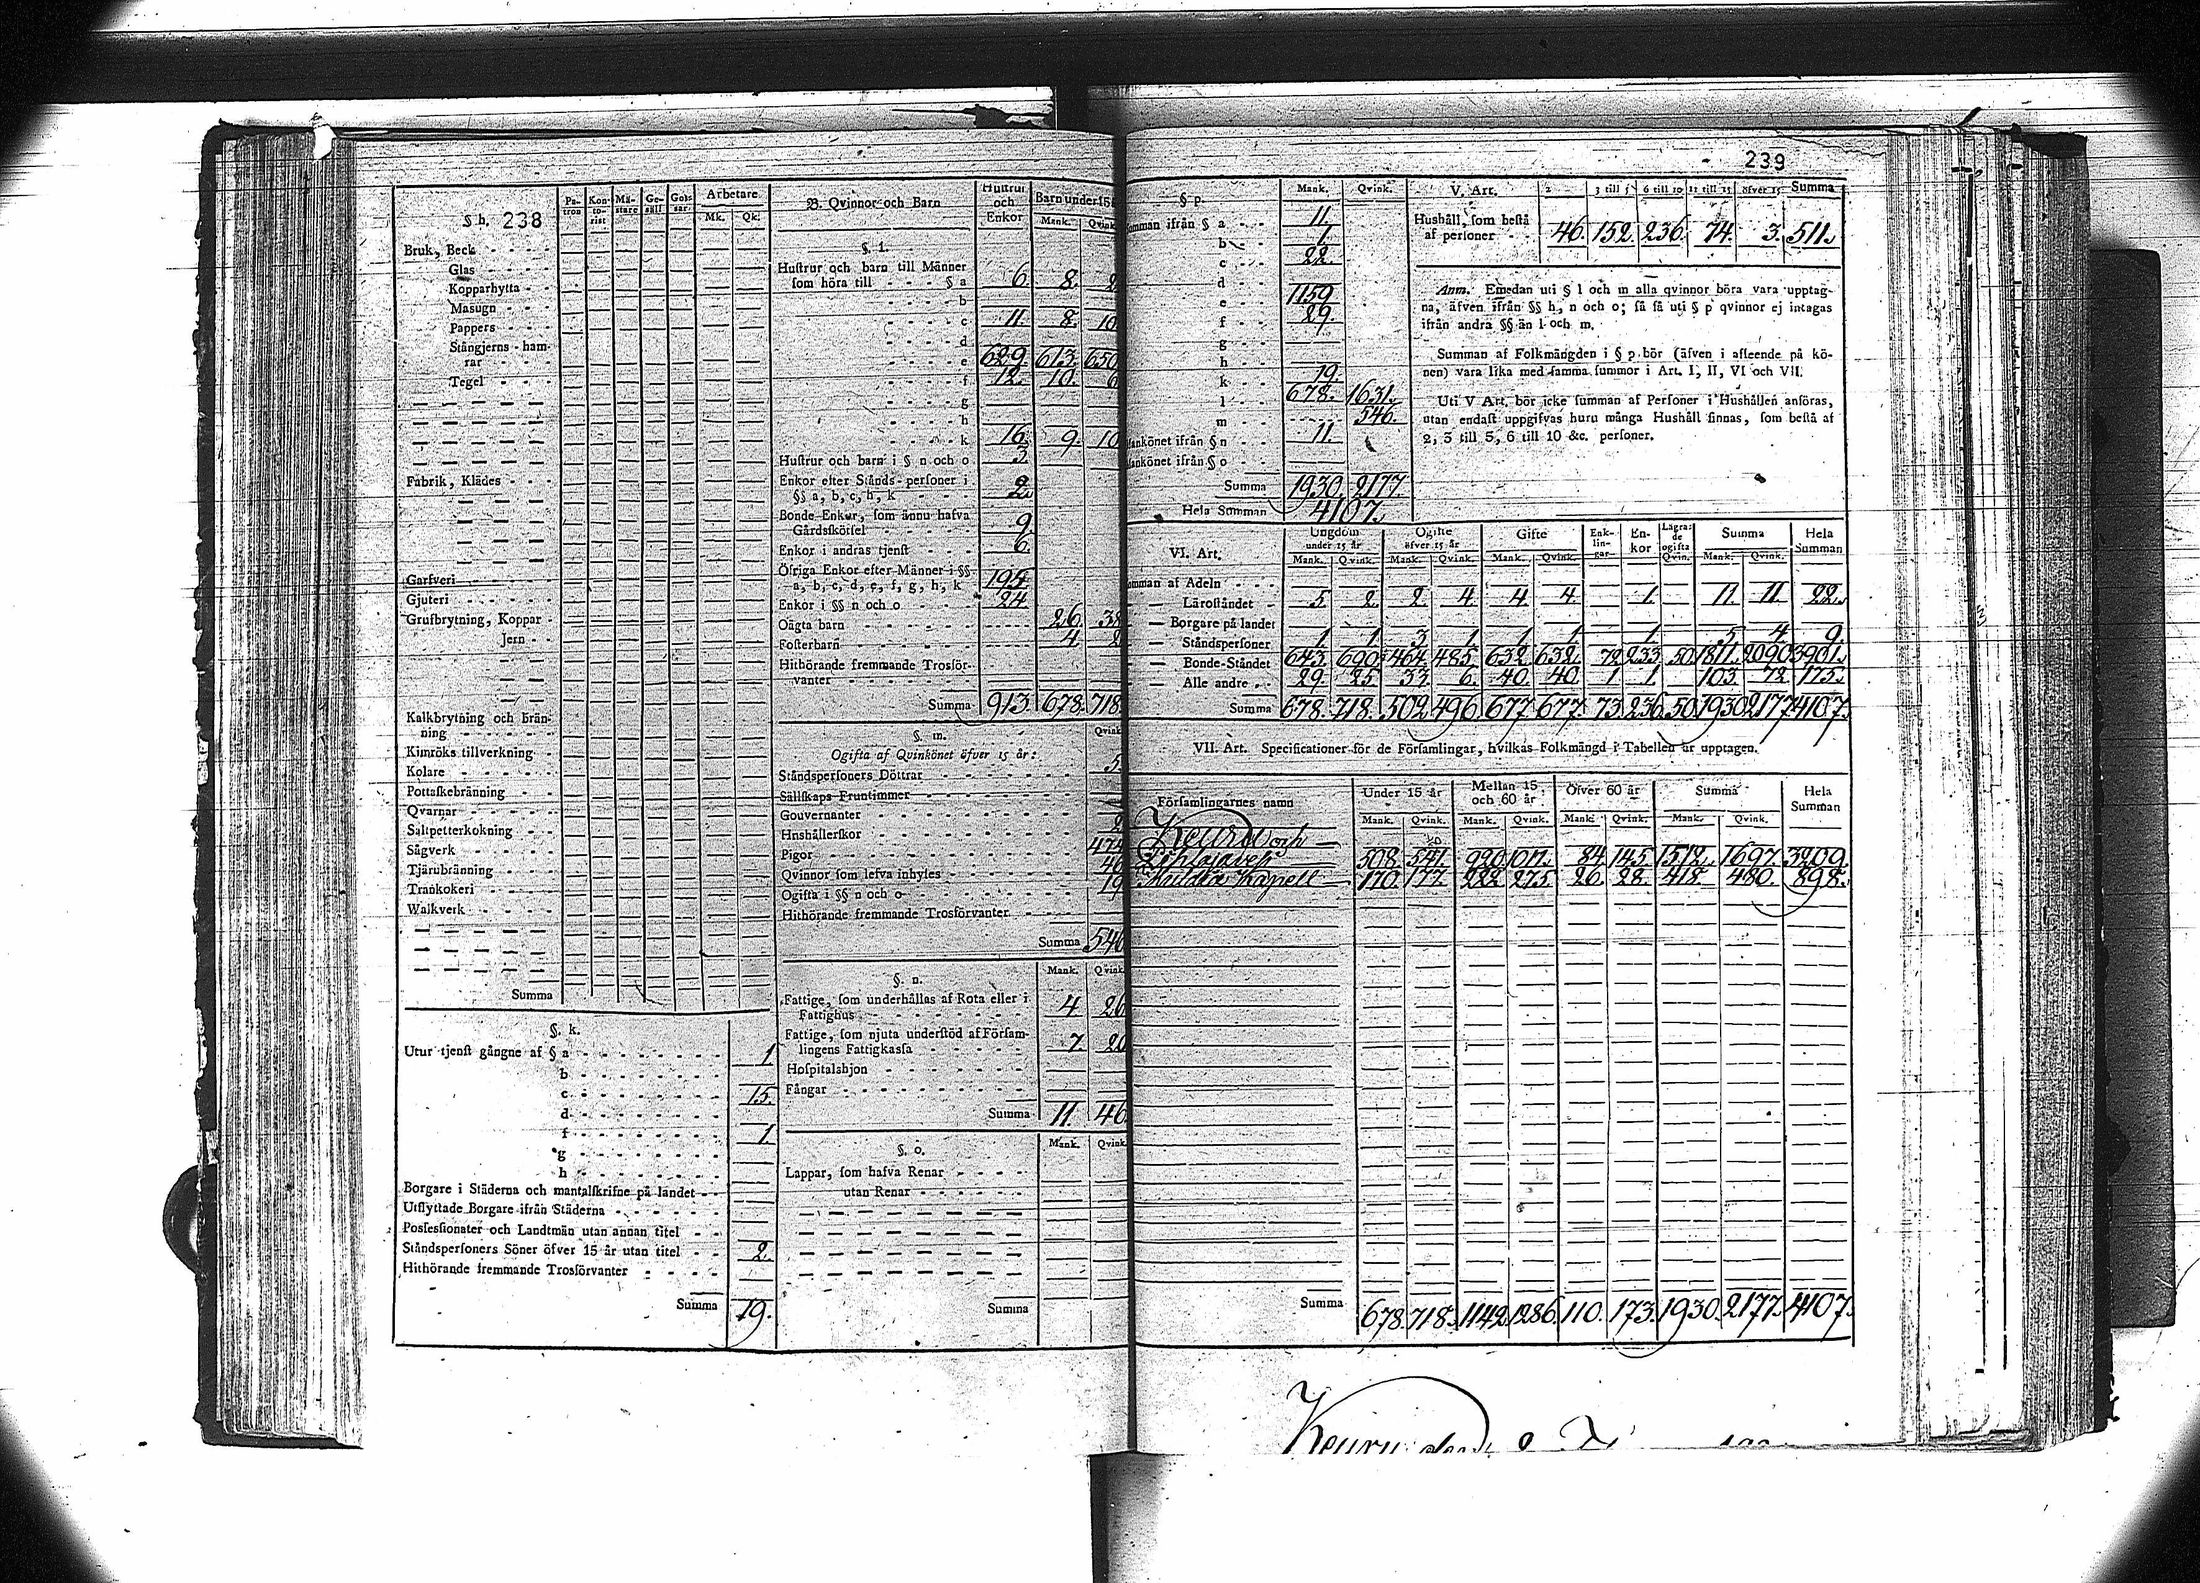 § h. 238
Pa-tron Kon-to-rist Mä-stare Ge-säll Gos-sar. Arbetare
Mk. Qk.
Bruk, Beck
Glas
Kopparhytta
Masugn
Pappers
Stångjerns-ham-
rar
Tegel
Fabrik, Klädes
Garfveri
Gjuteri
Grufbrytning, Koppar
Jern
Kalkbrytning och brän-
ning
Kimröks tillverkning
Kolare
Pottaskebränning
Qvarnar
Saltpetterkokning
Sågverk
Tjärubränning
Trankokeri
Walkverk
Summa
§. k.
Utur tjenst gångne af § a 1
b
c 15.
d
f 1.
g
h
Borgare i Städerna och mantalskrifne på landet
Utflyttade Borgare ifrån Städerna
Possessionater och Landtmän utan annan titel
Ståndspersoners Söner öfver 15 år utan titel 2.
Hithörande fremmande Trosförvanter
Summa 19.
B. Qvinnor och Barn Hustrur och Enkor Barn under 15
Mank. Qvink
§. l.
Hustrur och barn till Männer
som höra till § a 6. 8. 2
b
c 11. 8. 10
d
e 629. 613. 650
f 12. 10. 6
g
h
k 16. 9. 10
Hustrur och barn i § n och o 3.
Enkor efter Stånds-personer i
§§ a, b, c, h, k 2.
Bonde-Enkor, som ännu hafva
Gårdsskötsel 9.
Enkor i andras tjenst 6.
Öfriga Enkor efter Männer i §§
a, b, c, d, e, f, g, h, k 195
Enkor i §§ n och o 24
Oägta barn 26. 38
Fosterbarn 4. 2
Hithörande fremmande Trosför-
vanter
Summa 913. 678. 718.
§. m. Qvink
Ogifta af Qvinkönet öfver 15 år:
Ståndspersoners Döttrar 5.
Sällskaps-Fruntimmer
Gouvernanter
Hushållerskor 2
Pigor 474
Qvinnor som lefva inhyses 46
Ogifta i §§ n och o 19
Hithörande fremmande Trosförvanter
Summa 546
§. n. Mank. Qvink
Fattige, som underhållas af Rota eller i
Fattighus 4 26
Fattige, som njuta understöd af Försam-
lingens Fattigkassa 7. 20
Hospitalshjon
Fångar
Summa 11. 46
§. o. Mank. Qvink
Lappar, som hafva Renar
utan Renar
Summa
239
§ p. Mank. Qvink.
Summan ifrån § a 11.
b 1.
c 22.
d
e 1159
f 29.
g
h
k 19.
l 678. 1631.
m 546.
Mankönet ifrån § n 11.
Mankönet ifrån § o
Summa 1930. 2177.
Hela Summan 4107.
V. Art. 2 3 till 5 6 till 10 11 till 15 öfver 15 Summa
Hushåll, som bestå
af personer 46. 152. 236. 74. 3. 511.
Anm. Emedan uti § l och m alla qvinnor böra vara uptag-
na, äfven ifrån §§ h, n och o; så få uti § p qvinnor ej intagas
ifrån andra §§ än l och m.
Summan af Folkmängden i § p bör (äfven i afseende på kö-
nen) vara lika med samma summor i Art. I, II, VI och VII.
Uti V Art. bör icke summan af Personer i Hushållen anföras,
utan endast uppgifvas huru många Hushåll finnas, som bestå af
2, 3 till 5, 6 till 10 &c. personer.
VI. Art. Ungdom under 15 år Ogifte öfver 15 år Gifte Enk-lin-gar En-kor Lägra-de ogifta Qvin. Summa Hela Summan
Mank. Qvink. Mank. Qvink. Mank. Qvink. Mank. Qvink.
Summan af Adeln
Läroståndet 5 2. 2. 4. 4. 4. 1. 11. 11. 22.
Borgare på landet
Ståndspersoner 1. 1. 3. 1. 1. 1. 1. 5. 4. 9.
Bonde-Ståndet 643. 690. 464. 485. 632. 632. 72. 233. 50. 1811. 2090. 3901.
Alle andre 29. 25. 33. 6. 40. 40. 1. 1. 103. 72. 175.
Summa 678. 718. 502. 496. 677. 677. 73. 236. 50. 1930. 2177. 4107.
VII. Art. Specificationer för de Församlingar, hvilkas Folkmängd i Tabellen är upptagen.
Församlingarnes namn Under 15 år Mellan 15 och 60 år Öfver 60 år Summa Hela Summan
Mank. Qvink. Mank. Qvink. Mank. Qvink. Mank. Qvink.
Keuru och
Pihlajavesi 508. 541. 920. 1011. 84. 145. 1512. 1697. 3209.
Multia Kapell 170. 177. 222. 275. 26. 28. 418. 480. 898.
Summa 678. 718. 1142. 1286. 110. 173. 1930. 2177. 4107.
Keuru